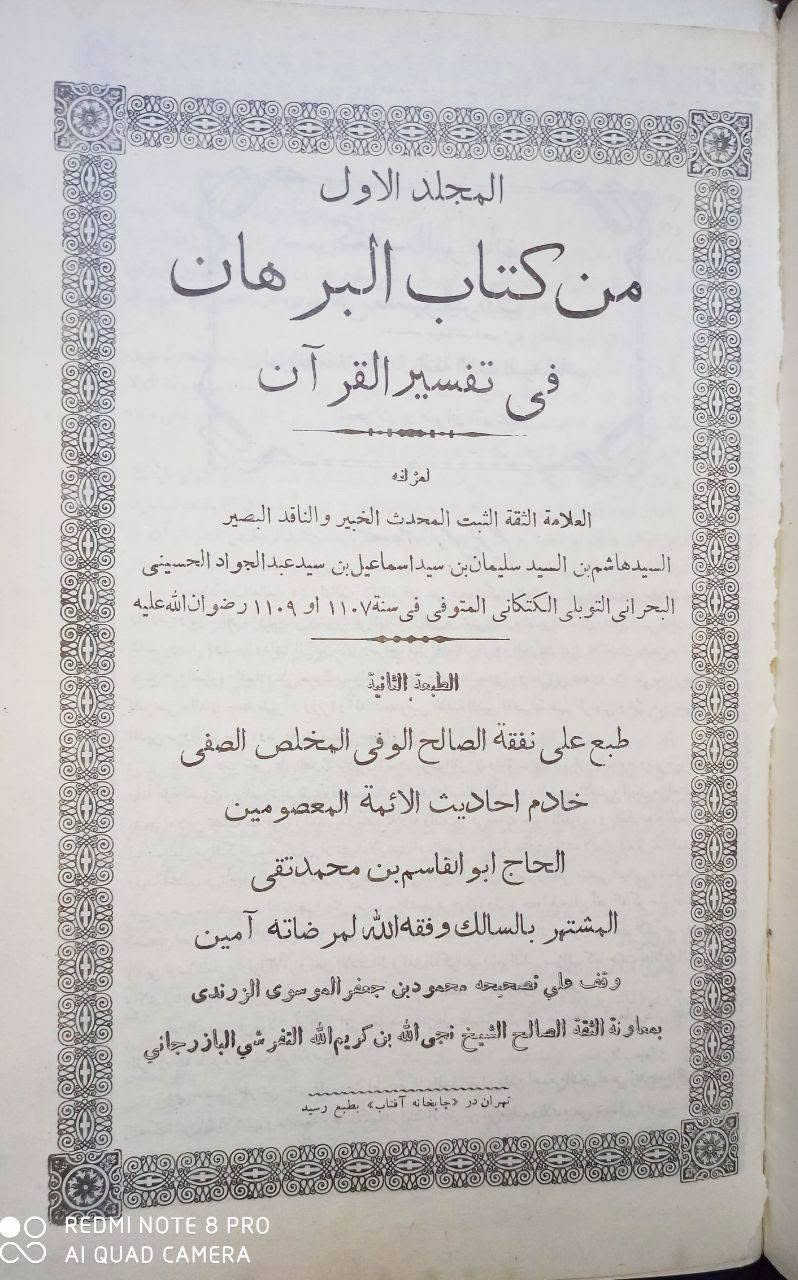 المجلد الاول
من كتاب البرهان
فى تفسير القرآن
لمؤلفه
العلامة الثقة الثبت المحدث الخبير والناقد البصير
السيد هاشم بن السيد سليمان بن سيد اسماعيل بن سيد عبد الجواد الحسينى
البحرانى التوبلى الكتكانى المتوفى فى سنة ١١٠٧ او ١١٠٩ رضوان الله عليه
الطبعة الثانية
طبع على نفقة الصالح الوفى المخلص الصفى
خادم احاديث الائمة المعصومين
الحاج ابوالقاسم بن محمدتقى
المشتهر بالسالك وفقه الله لمرضاته آمين
وقف على تصحيحه محمود بن جعفر الموسوى الزرندى
بمعاونة الثقة الصالح الشيخ نجى الله بن كريم الله التفرشي البازرجاني
تهران در «چاپخانه آفتاب» بطبع رسيد
REDMI NOTE 8 PRO
AI QUAD CAMERA